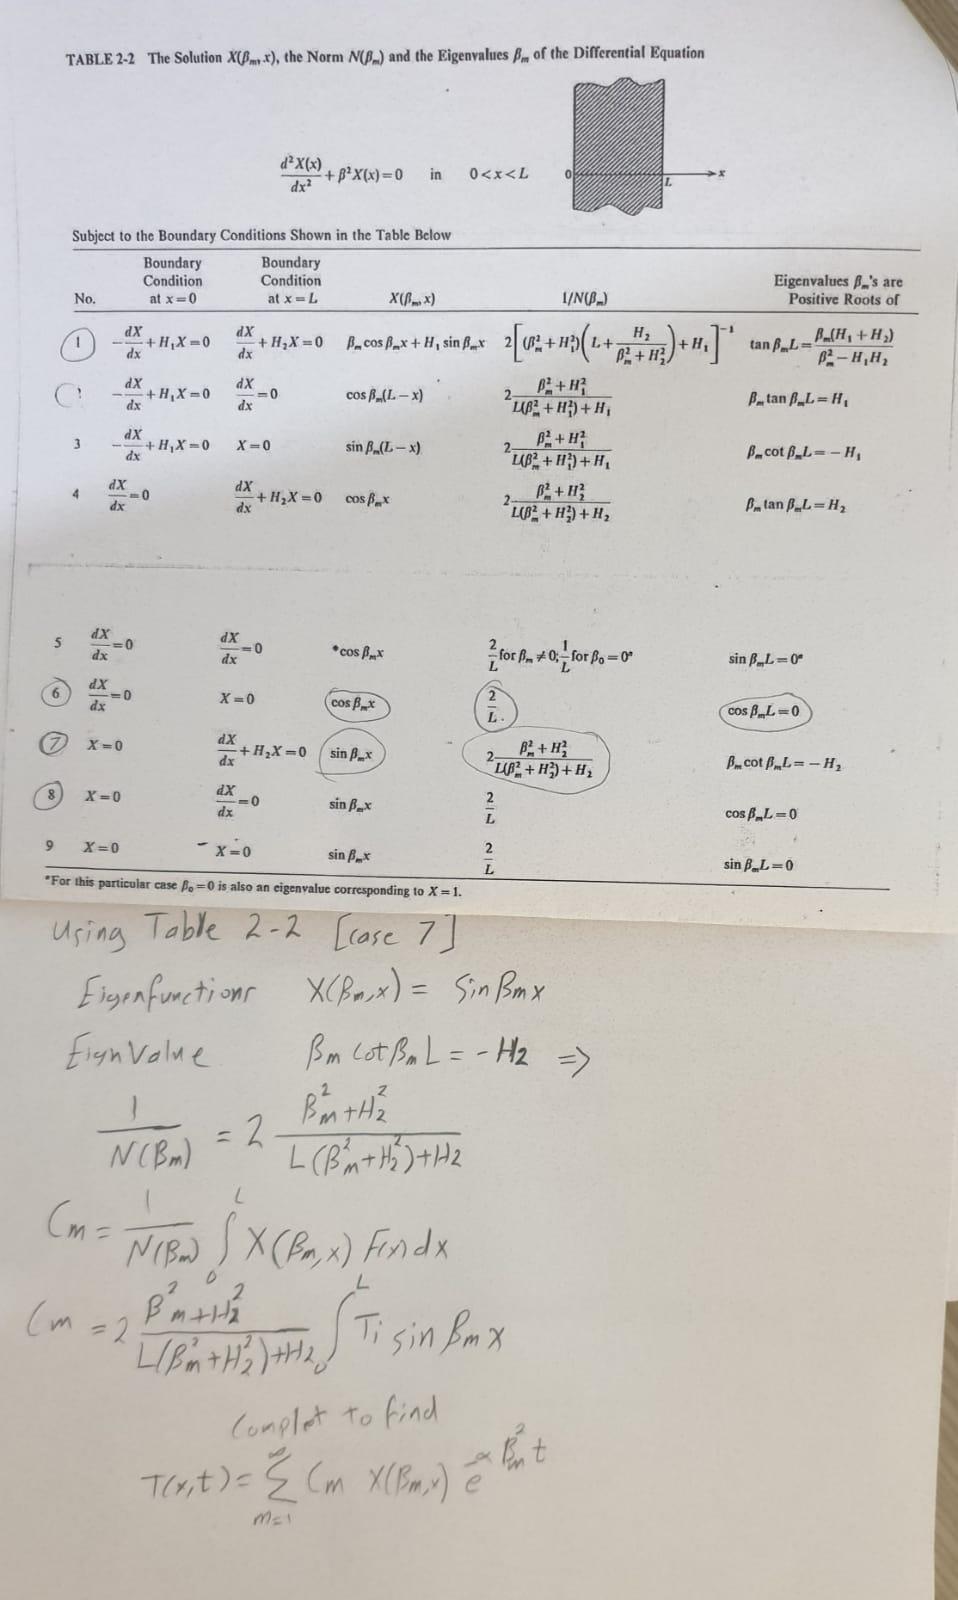 TABLE 2-2 The Solution X(βm, x), the Norm N(βm) and the Eigenvalues βm of the Differential Equation
d²X(x)/dx² + β²X(x) = 0 in 0 < x < L
0 L x
Subject to the Boundary Conditions Shown in the Table Below
No. Boundary Condition at x = 0 Boundary Condition at x = L X(βm, x) 1/N(βm) Eigenvalues βm's are Positive Roots of
1 -dX/dx + H₁X = 0 dX/dx + H₂X = 0 βm cos βmx + H₁ sin βmx 2[(βm² + H₁²)(L + H₂/(βm² + H₂²)) + H₁]⁻¹ tan βmL = βm(H₁ + H₂)/(βm² - H₁H₂)
-dX/dx + H₁X = 0 dX/dx = 0 cos βm(L - x) 2 (βm² + H₁²)/(L(βm² + H₁²) + H₁) βm tan βmL = H₁
3 -dX/dx + H₁X = 0 X = 0 sin βm(L - x) 2 (βm² + H₁²)/(L(βm² + H₁²) + H₁) βm cot βmL = - H₁
4 dX/dx = 0 dX/dx + H₂X = 0 cos βmx 2 (βm² + H₂²)/(L(βm² + H₂²) + H₂) βm tan βmL = H₂
5 dX/dx = 0 dX/dx = 0 *cos βmx 2/L for βm ≠ 0; 1/L for β₀ = 0* sin βmL = 0*
6 dX/dx = 0 X = 0 cos βmx 2/L. cos βmL = 0
7 X = 0 dX/dx + H₂X = 0 sin βmx 2 (βm² + H₂²)/(L(βm² + H₂²) + H₂) βm cot βmL = - H₂
8 X = 0 dX/dx = 0 sin βmx 2/L cos βmL = 0
9 X = 0 X = 0 sin βmx 2/L sin βmL = 0
*For this particular case β₀ = 0 is also an eigenvalue corresponding to X = 1.
Using Table 2-2 [case 7]
Eigenfunctions X(βm,x) = Sin βmx
EignValue βm Cot βm L = - H2 =>
1/N(βm) = 2 (βm² + H₂²)/(L(βm² + H₂²) + H2)
Cm = 1/N(βm) ∫₀ᴸ X(βm, x) F(x) dx
Cm = 2 (βm² + H₂²)/(L(βm² + H₂²) + H2) ∫₀ᴸ Ti sin βm x
Complet to find
T(x,t) = Σ_{m=1}^{∞} Cm X(βm,x) e^{-α βm² t}